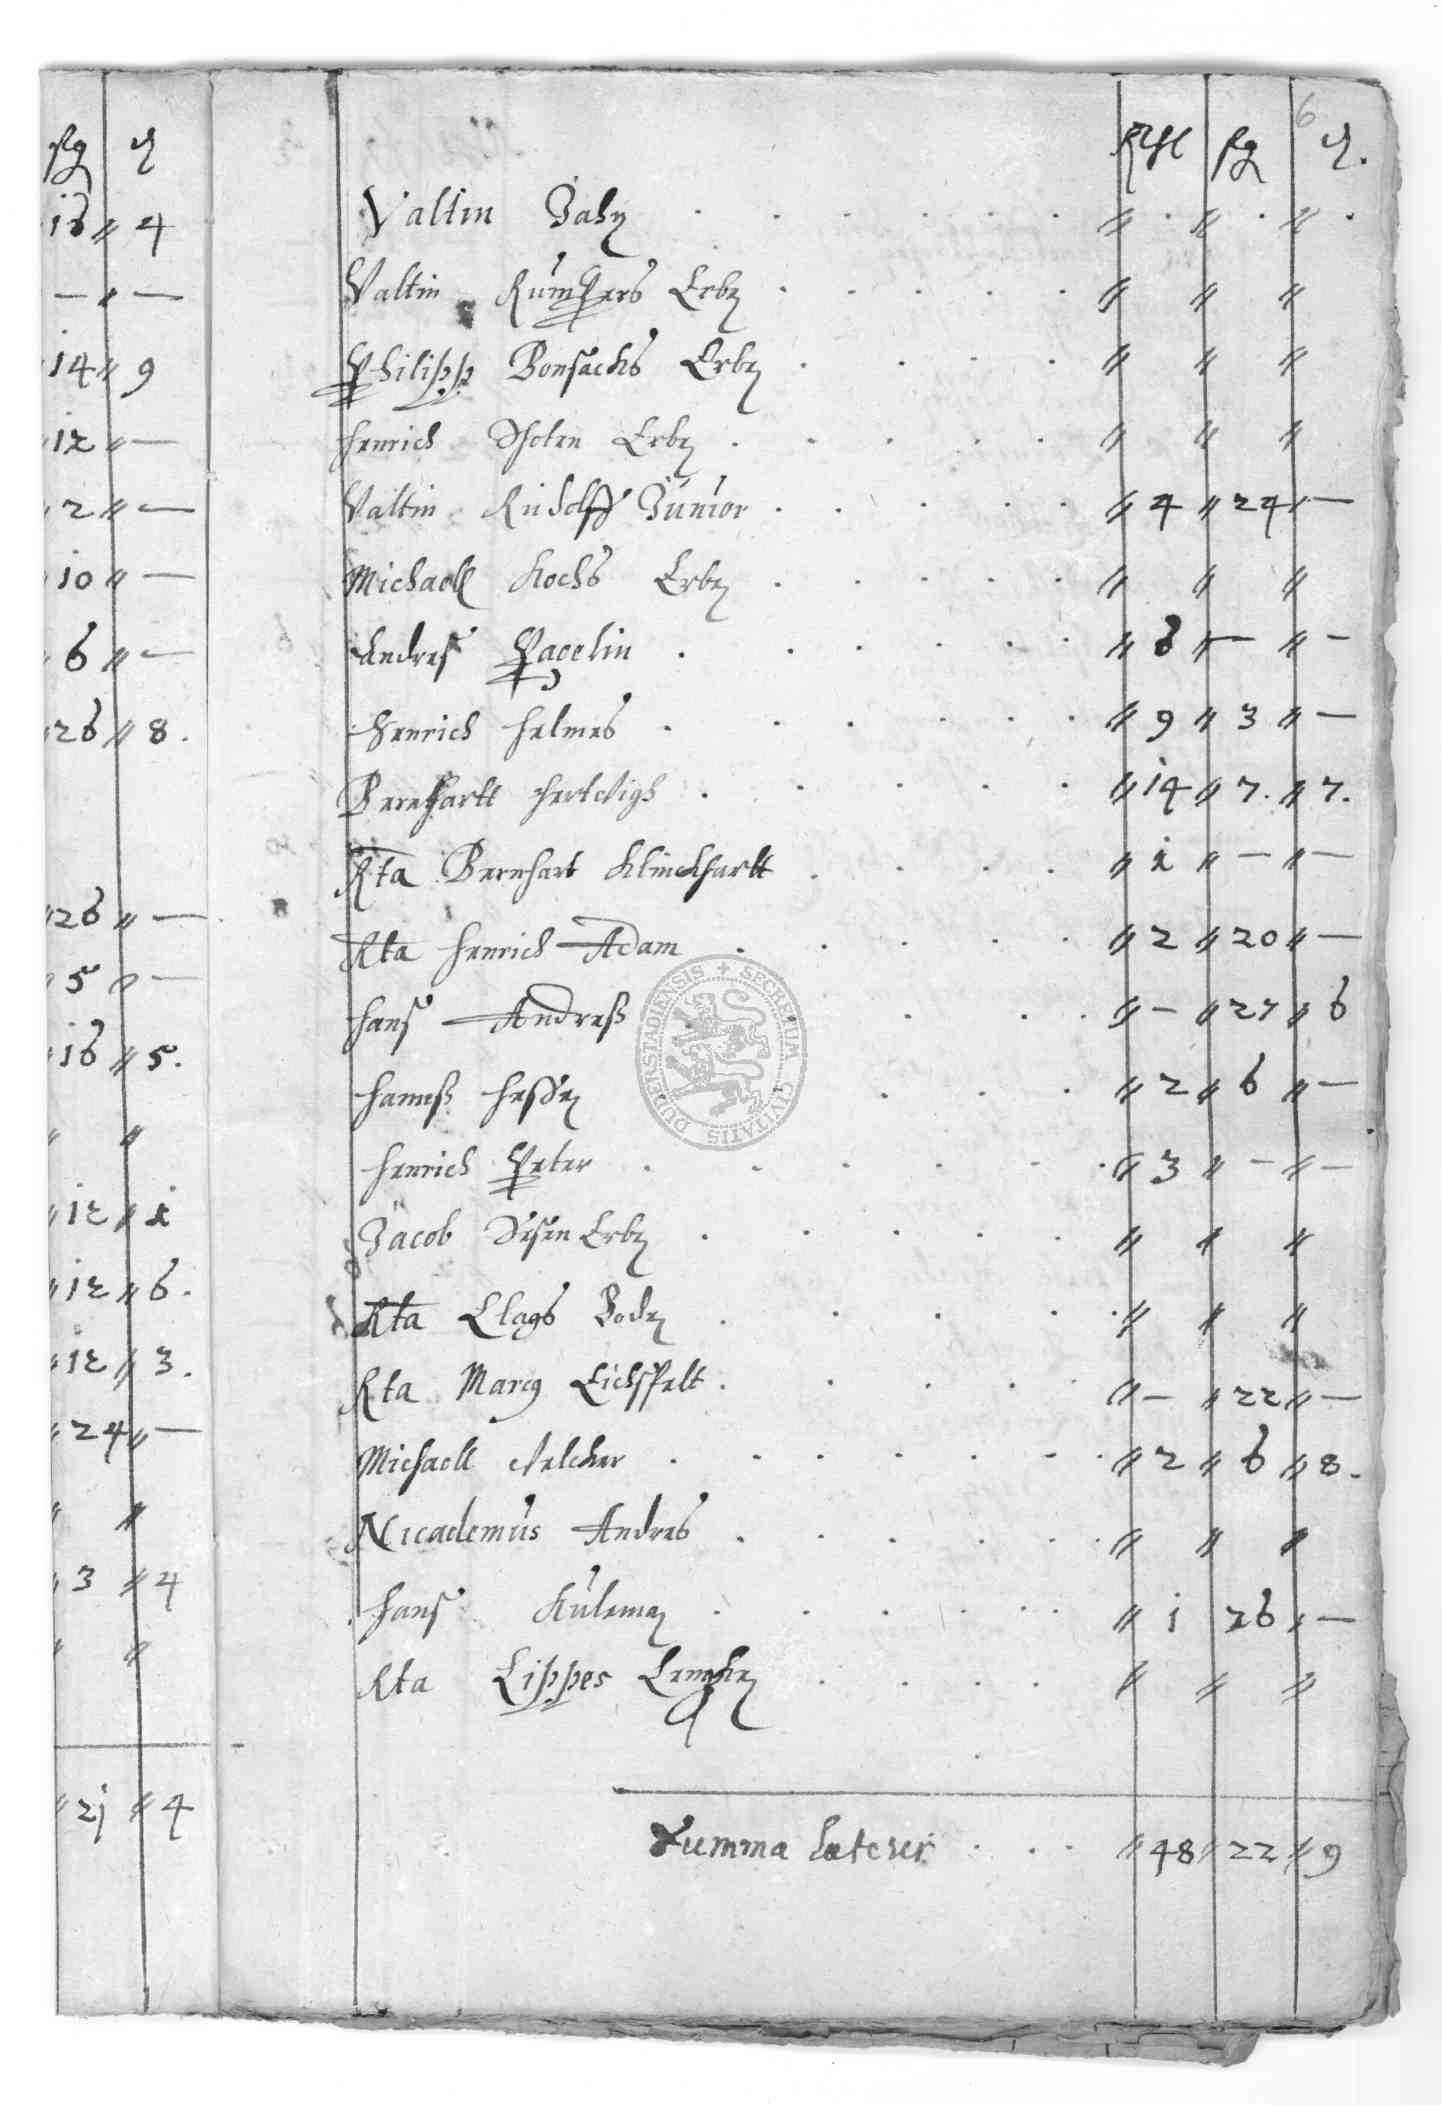 ßg ₰
16 // 4
— // —
14 // 9
12 // —
2 // —
10 // —
6 // —
26 // 8.
26 // —
5 // —
16 // 5.
// //
12 // i
12 // 6.
12 // 3.
24 // —
// //
3 // 4
// //
2j // 4
6
Rthl ßg ₰.
Valtin Zahn . . . . . // . // . // .
Valtin Erben . . . . . // // //
Philipp Bonsacks Erben . . . . // // //
Henrich Erben . . . . . // // //
Valtin Rudolff Junior . . . . . // 4 // 24 // —
Michaell Kochs Erben . . . . . // // //
Andres . . . . . // 6 // — // —
Henrich Helmes . . . . . . // 9 // 3 // —
Bernhartt Hertwigh . . . . . // 14 // 7. // 7.
Rta Bernhart Klinckhartt . . . . // i // — // —
Rta Henrich Adam . . . . . // 2 // 20 // —
Hans Andreß . . . . // — // 27 // 6
Hannß Hessen . . . // 2 // 6 // —
Henrich Peter . . . . . . // 3 // — // —
Jacob Erben . . . . . // // //
Rta Clags Boden . . . . // // //
Rta Marcg Eichspelt . . . . // — // 22 // —
Michaell . . . . . . // 2 // 6 // 8.
Nicademus Andres . . . . . // // //
Hans Kuleman . . . . . // i 26 // —
Rta Lippes . . . . // // //
Summa Lateris . . . // 48 // 22 // 9
SECRETUM CIVITATIS DUDERSTADIENSIS